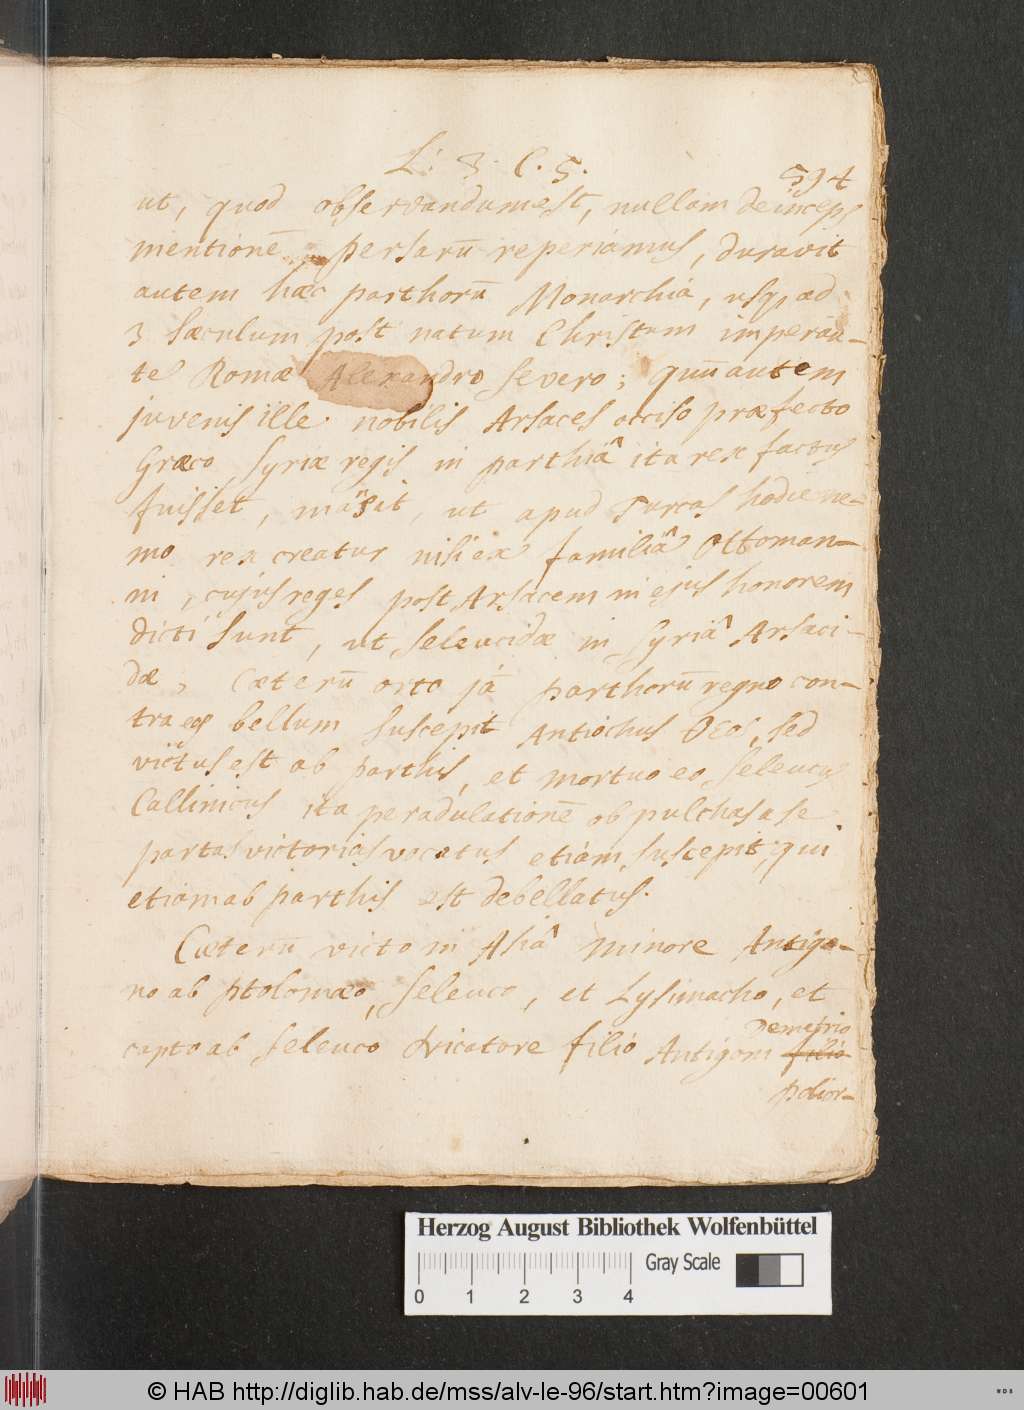 L: 3. C. 5.
594
ut, quod observandum est, nullam deinceps
mentionē persarū reperiamus, duravit
autem hæc parthorū Monarchia, usq, ad
3 sæculum post natum Christum imperan-
te Romæ Alexandro severo; quū autem
juvenis ille nobilis Arsaces occiso præfecto
Græco syriæ regis in parthiâ ita rex factus
fuisset, māsit, ut apud Turcas hodie ne-
mo rex creatur nisi ex familiâ Ottoman-
ni, cujus reges post Arsacem in ejus honorem
dicti sunt, ut seleucidæ in syriâ Arsaci-
dæ, Cæterū orto jā parthorū regno con-
tra eos bellum suscepit Antiochus Θεος, sed
victus est ab parthis, et mortuo eo seleucus
Callinicus ita per adulationē ob pulchas a se
partas victorias vocatus etiam suscepit, qui
etiam ab parthis est debellatus.
Cæterū victo in Asiâ minore Antigo-
no ab ptolomæo, seleuco, et Lysimacho, et
Demetrio
capto ab seleuco filio Antigoni filio
polior-
Herzog August Bibliothek Wolfenbüttel
Gray Scale
0 1 2 3 4
© HAB http://diglib.hab.de/mss/alv-le-96/start.htm?image=00601